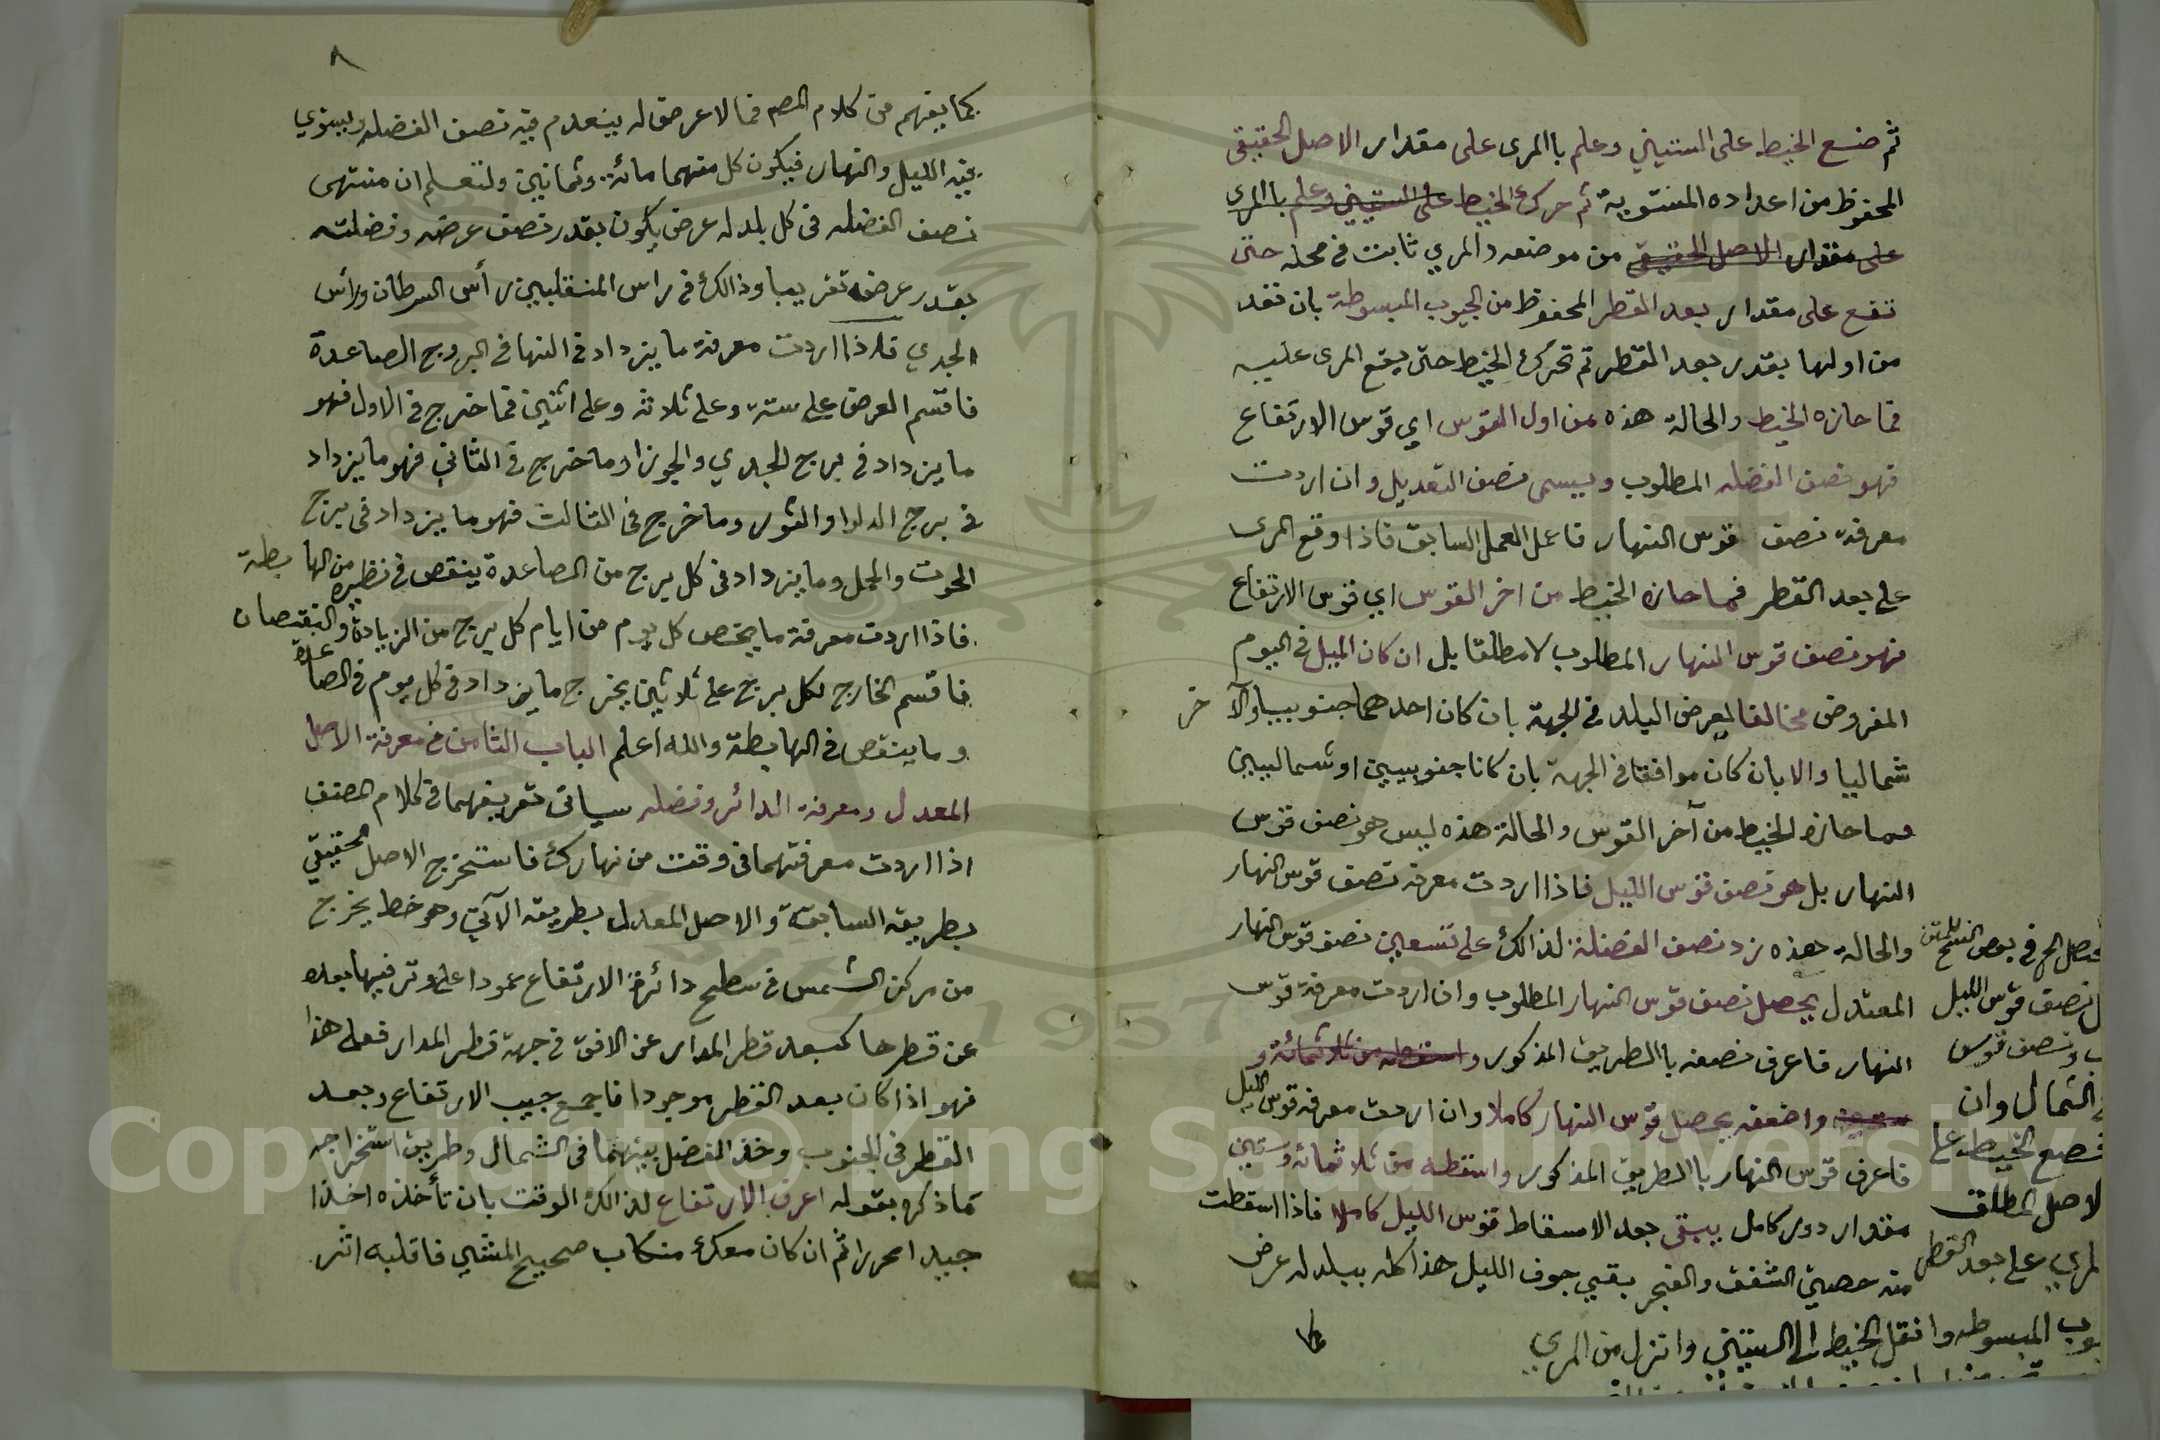 ثم ضع الخيط على الستيني وعلم باالمرى على مقدار الاصل الحقيقى
المحفوظ من اعداده المستوية ثم حرك الخيط على الستيني وعلم باالمرى
على مقدار الاصل الحقيقي من موضعه والمري ثابت في محله حتى
تقع على مقدار بعد القطر المحفوظ من الجيوب المبسوطة بان تعد
من اولها بقدر بعد القطر ثم تحرك الخيط حتى يقع المرى عليه
فما حازه الخيط والحالة هذه من اول القوس اي قوس الارتفاع
فهو نصف الفضله المطلوب ويسمى نصف التعديل وان اردت
معرفة نصف قوس النهار فاعمل العمل السابق فاذا وقع المرى
على بعد القطر فما حازه الخيط من اخر القوس اي قوس الارتفاع
فهو نصف قوس النهار المطلوب لا مطلقا بل ان كان الميل في اليوم
المفروض مخالفا لعرض البلد في الجهة بان كان احدهما جنوبيا والآخر
شماليا والا بان كان موافقا في الجهة بان كانا جنوبيين او شماليين
فما حازه الخيط من آخر القوس والحالة هذه ليس هو نصف قوس
النهار بل هو نصف قوس الليل فاذا اردت معرفة نصف قوس النهار
والحالة هذه زد نصف الفضلة لذالك على تسعين نصف قوس النهار
المعتدل يحصل نصف قوس النهار المطلوب وان اردت معرفة قوس
النهار فاعرف نصفه باالطريق المذكور واسقطه من ثلاثمائة و
ستين واضعفه يحصل قوس النهار كاملا وان اردت معرفة قوس الليل
فاعرف قوس النهار باالطريق المذكور واسقطه من ثلاثمائة وستين
مقدار دور كامل يبقى بعد الاسقاط قوس الليل كاملا فاذا اسقطت
منه حصتي الشفق والفجر بقي جوف الليل هذا كله ببلد له عرض
في بعض النسخ
نصف قوس الليل
ونصف قوس
الشمال وان
الخيط على
لاصل المطلق
لمري على بعد القطر
المبسوطه وانقل الخيط الى الستيني وانزل من المري
٨
كما يفهم من كلام المصـ فما لا عرض له ينعدم فيه نصف الفضله ويستوي
فيه الليل والنهار فيكون كل منهما مائة وثمانين ولتعلم ان منتهى
نصف الفضله في كل بلد له عرض يكون بقدر نصف عرضه وفضلته
بقدر عرضه تقريبا وذالك في راس المنقلبين رأس السرطان ورأس
الجدي فاذا اردت معرفة ما يزداد في النهار في البروج الصاعدة
فاقسم العرض على ستة وعلى ثلاثة وعلى اثنين فما خرج في الاول فهو
ما يزداد في برج الجدي والجوزا وما خرج في الثاني فهو ما يزداد
في برج الدلو او الثور وما خرج في الثالث فهو ما يزداد في برج
الحوت والحمل وما يزداد في كل برج من الصاعدة ينقص في نظيره من الهابطة
فاذا اردت معرفة ما يخص كل يوم من ايام كل برج من الزيادة والنقصان
فاقسم الخارج لكل برج على ثلاثين يخرج ما يزداد في كل يوم في الصاعدة
وما ينقص في الهابطة والله اعلم الباب الثامن في معرفة الاصل
المعدل ومعرفة الدائر وفضله سياتى تعريفهما في كلام المصنف
اذا اردت معرفتهما في وقت من نهارك فاستخرج الاصل الحقيقي
بطريقه السابقة والاصل المعدل بطريقه الآتي وهو خط يخرج
من مركز الشمس في سطح دائرة الارتفاع عمودا على وتر فيها بعده
عن قطرها كبعد قطر المدار عن الافق في جهة قطر المدار فعلى هذا
فهو اذا كان بعد القطر موجودا فاجمع جيب الارتفاع وبعد
القطر في الجنوب وخذ الفضل بينهما في الشمال وطريق استخراجه
ما ذكره بقوله اعرف الارتفاع لذالك الوقت بان تأخذه اخذا
جيدا محررا ثم ان كان معك منكاب صحيح المشي فاقلبه اثر